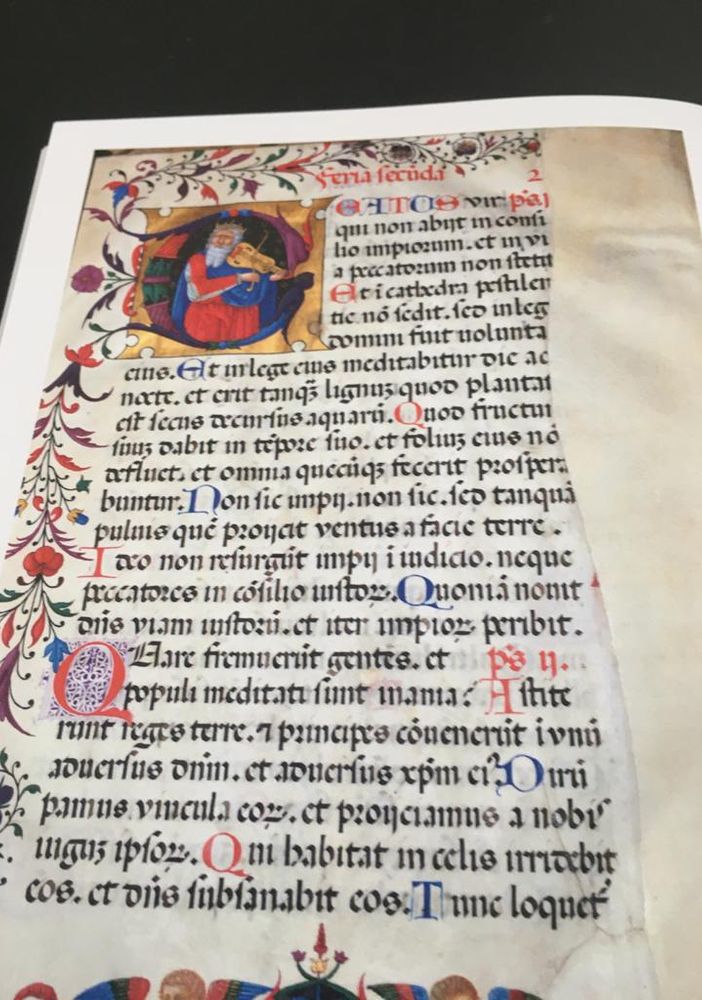 Feria secūda 2
EATUS vir ps. j
qui non abijt in consi
lio impiorum. et in vi
a peccatorum non stetit
Et ī cathedra pestilen
tie nō sedit. sed in leg
domini fuit uolunta
eius. Et in lege eius meditabitur die ac
nocte. et erit tanqꝫ lignuꝫ quod plantat
est secus decursus aquarū. Quod fructu
suuꝫ dabit in tēpore suo. et foliuꝫ eius nō
defluet. et omnia quecūqꝫ fecerit prospera
buntur. Non sic impij. non sic. sed tanquā
puluis quē proijcit ventus a facie terre.
Ideo non resurgūt impij ī iudicio. neque
peccatores in cōsilio iustoꝝ. Quoniā nouit
dn̄s viam iustorū. et iter impioꝝ peribit.
QUare fremuerūt gentes. et ps ij.
populi meditati sunt inania: Astite
runt reges terre. ⁊ principes cōuenerūt ī vnū
aduersus dn̄m. et aduersus xp̄m eiꝰ Dirū
pamus vincula eoꝝ. et proijciamus a nobis
iuguꝫ ipsoꝝ. Qui habitat in celis irridebit
eos. et dn̄s subsanabit eos. Tunc loquet᷑